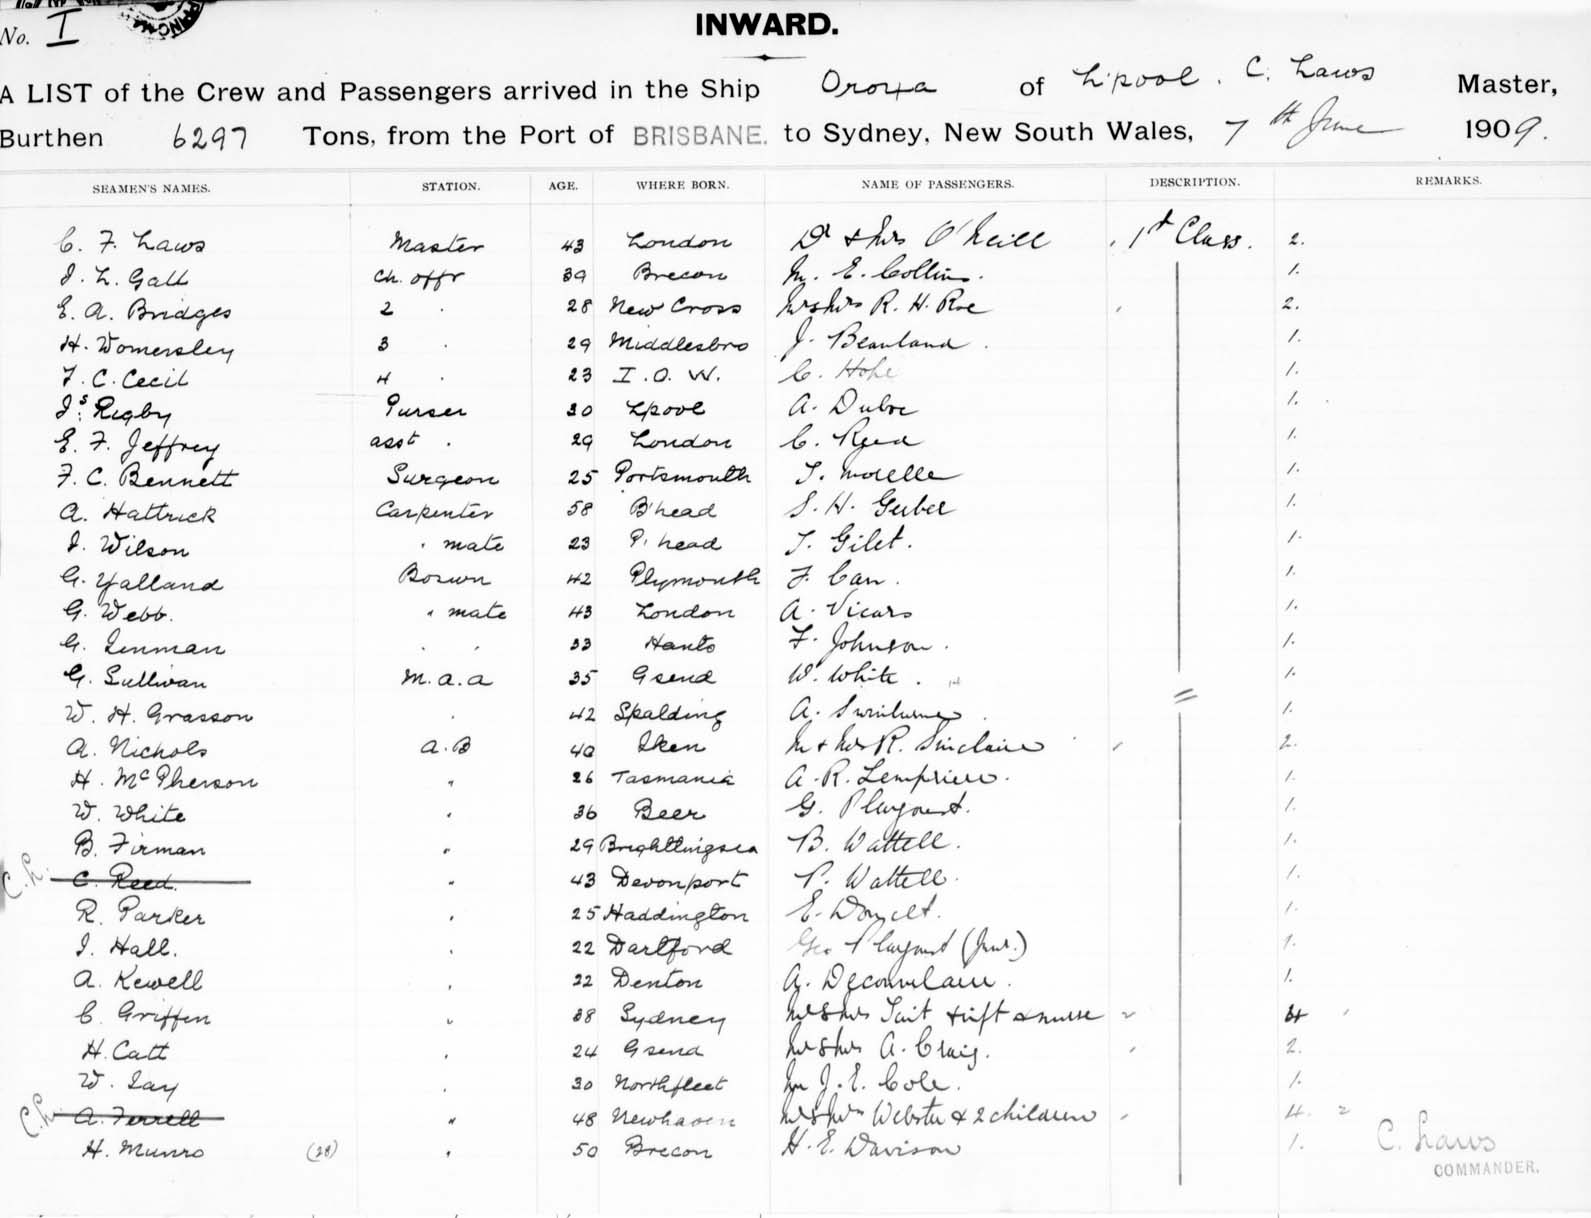 No. I
INWARD.
A LIST of the Crew and Passengers arrived in the Ship Oroya of L'pool. C. Laws Master,
Burthen 6297 Tons, from the Port of BRISBANE. to Sydney, New South Wales, 7th June 1909.
SEAMEN'S NAMES. STATION. AGE. WHERE BORN. NAME OF PASSENGERS. DESCRIPTION. REMARKS.
C. F. Laws Master 43 London Dr & Mrs O'Neill 1st Class. 2.
J. L. Gall Ch. offr 39 Brecon M. E. Collins. 1.
E. A. Bridges 2 " 28 New Cross Mr & Mrs R. H. Roe " 2.
H. Womersley 3 " 29 Middlesbro J. Beauland. 1.
F. C. Cecil 4 " 23 I.O.W. C. Hope 1.
Js. Rigby Purser 30 Lpool A. 1.
E. F. Jeffrey asst " 29 London C. 1.
F. C. Bennett Surgeon 25 Portsmouth T. Morelle 1.
A. Hattrick Carpenter 58 B'head S. H. Gerber 1.
J. Wilson " mate 23 P'head T. Gilet. 1.
G. Yalland Bosun 42 Plymouth F. Carr. 1.
G. Webb. " mate 43 London A. Vicars 1.
G. Linman " " 33 Hants F. Johnson. 1.
G. Sullivan M.a.a 35 Gsend W. White. 1.
W. H. Grasson " 42 Spalding A. Swinburne. 1.
A. Nichols A.B 40 Iken M & Mrs R. Sinclaire " 2.
H. McPherson " 26 Tasmania A. R. Lempriere. 1.
W. White " 36 Beer G. Playoust. 1.
B. Firman " 29 Brightlingsea B. Wattell. 1.
C.L. C. Reed. " 43 Devonport P. Wattell. 1.
R. Parker " 25 Haddington E. 1.
J. Hall. " 22 Dartford Geo Playoust (Junr.) 1.
A. Kewell " 22 Denton A. 1.
C. Griffin " 38 Sydney Mr & Mrs Tait & inft & nurse " 4 "
H. Catt " 24 Gsend Mr & Mrs A. Craig. " 2.
W. Lay " 30 Northfleet Mr J. E. Cole. 1.
C.L. A. Ferrell " 48 Newhaven Mr & Mrs Webster & 2 children " 4. "
H. Munro (28) " 50 Brecon H. E. Davison 1.
C. Laws
COMMANDER.